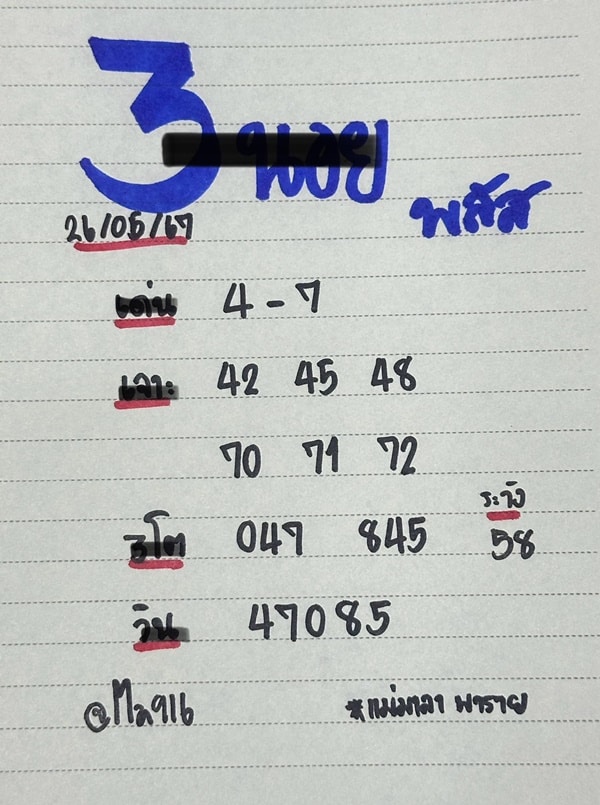 3 นอย
พลัส
26/05/67
เด่น 4 - 7
เจาะ 42 45 48
70 71 72
ระวัง
3โต 047 845 58
วิน 47085
*แม่มาลา พารวย